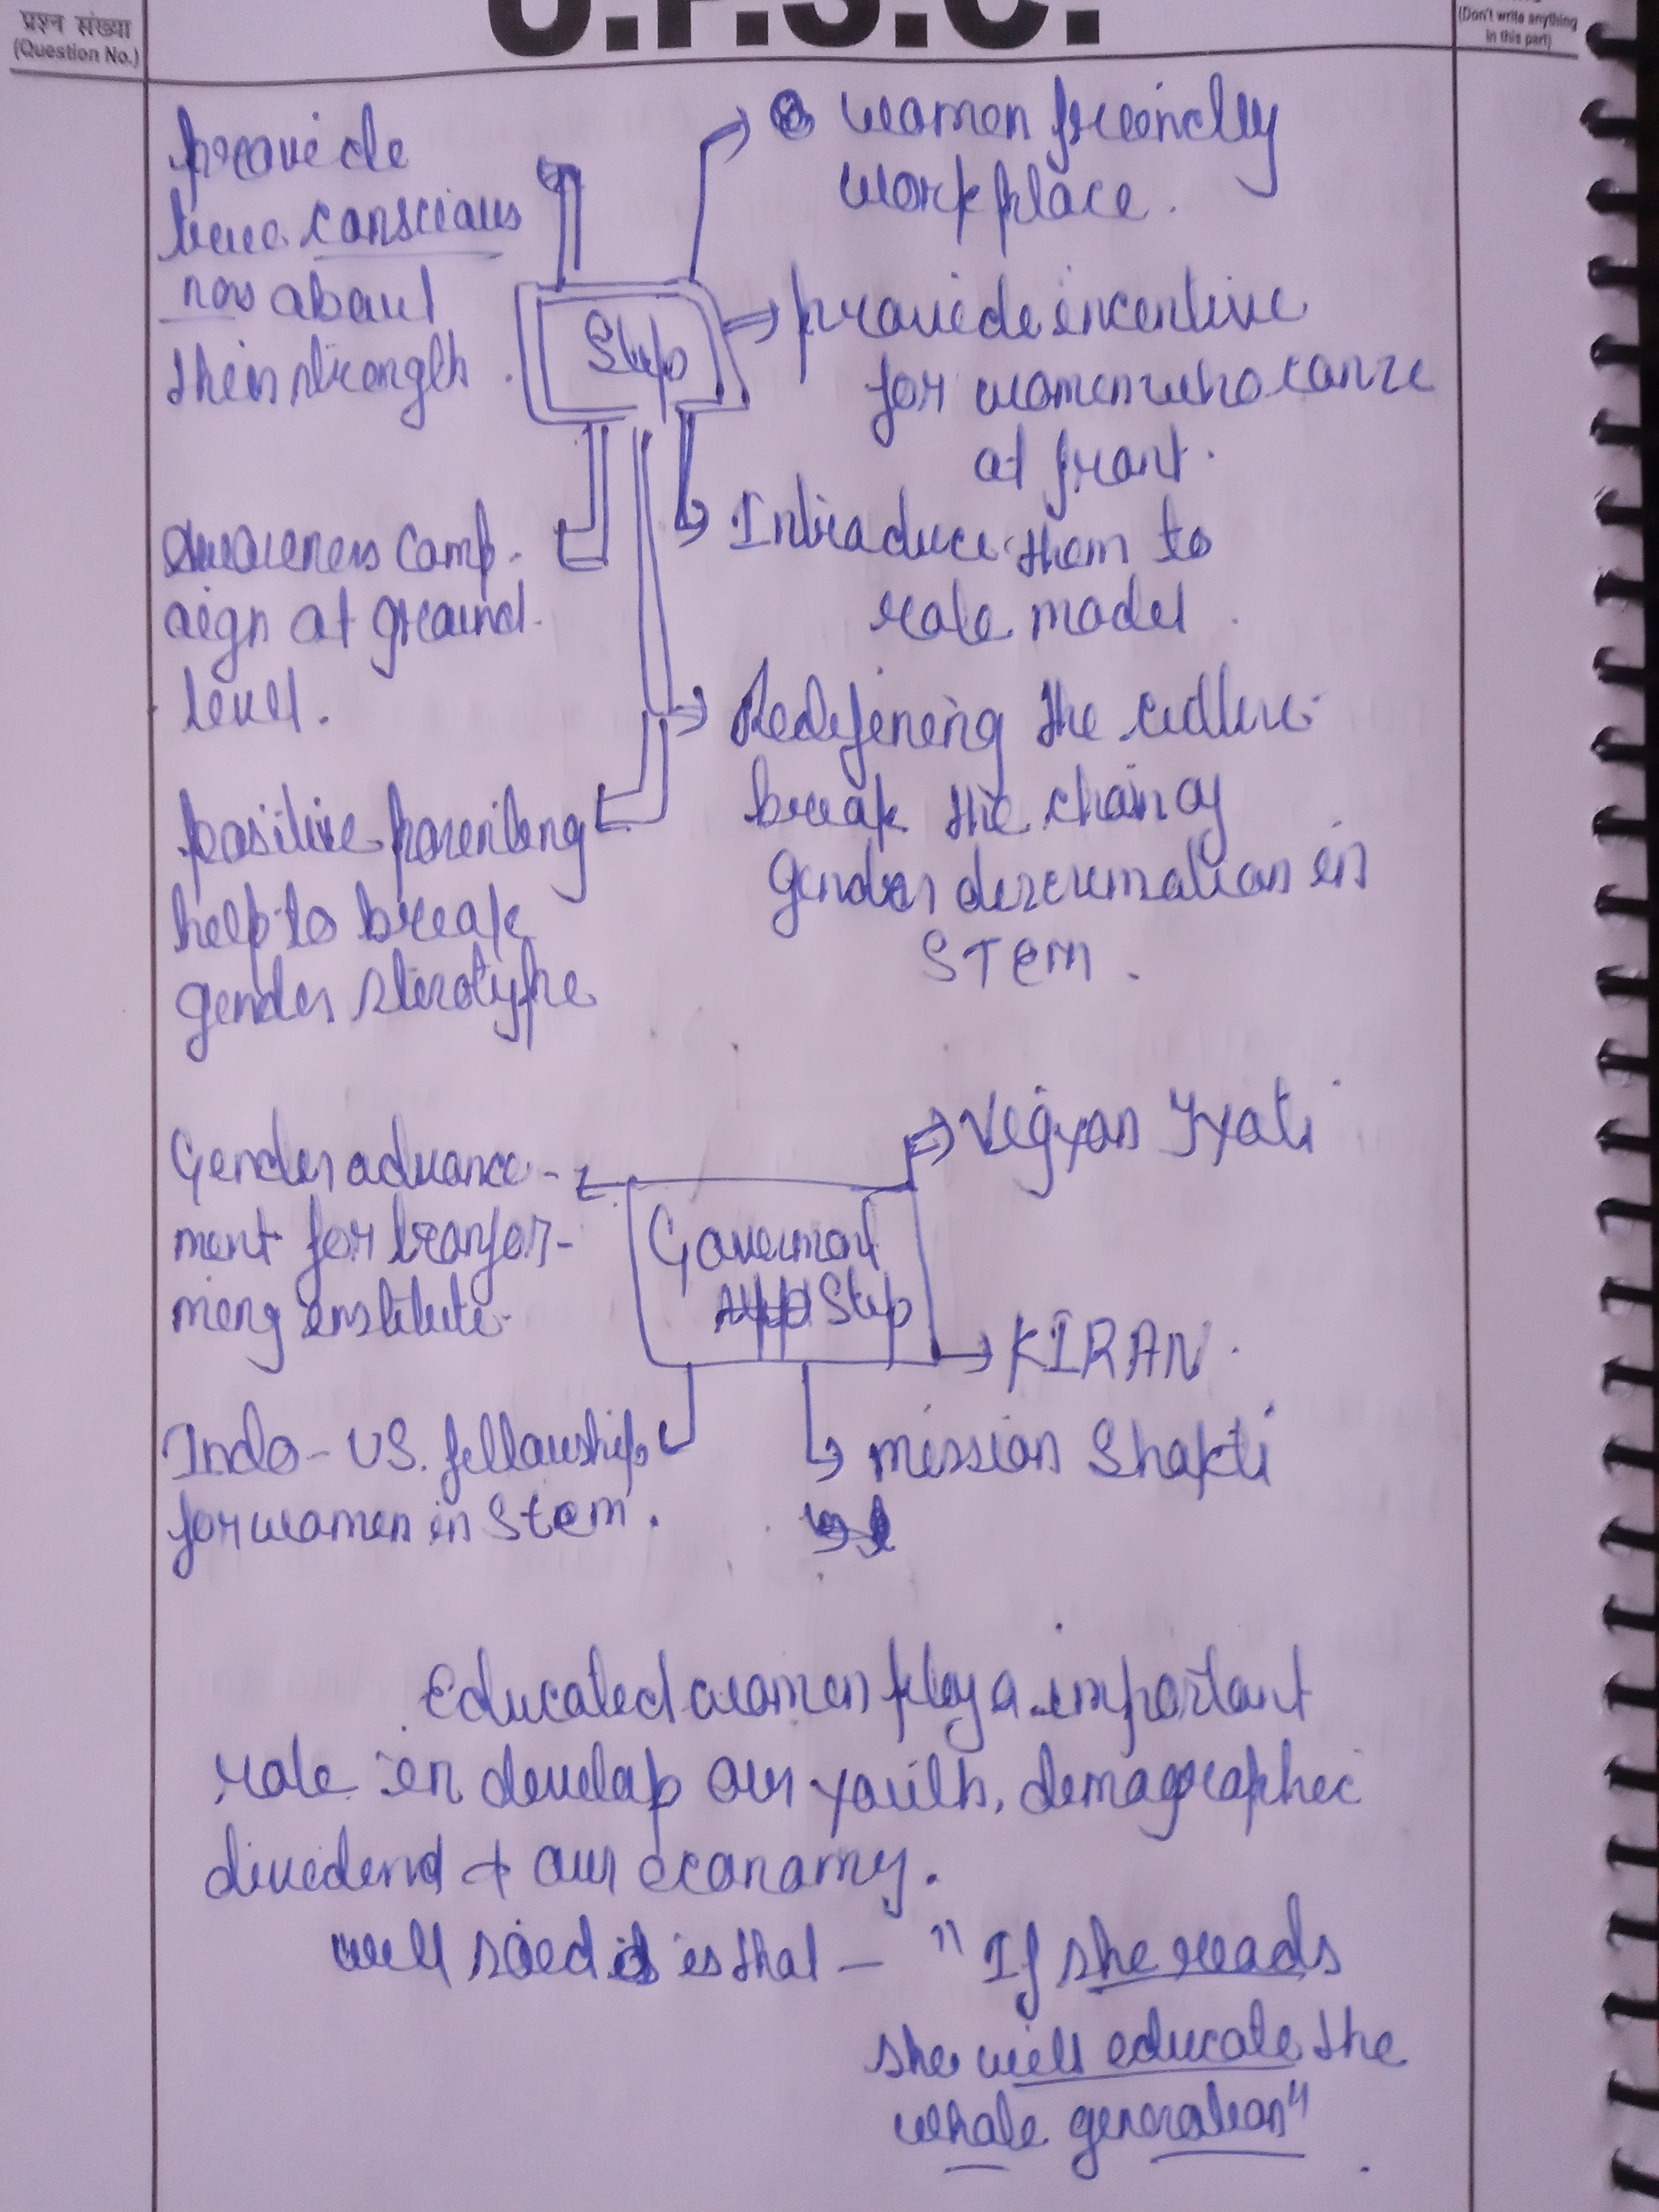 प्रश्न संख्या
(Question No.)
U.P.S.C.
(Don't write anything
in this part)
provide
true conscious
nes about
their strength.
women friendly
workplace.
Step
provide incentive
for women who
at front.
Awareness camp-
aign at ground
level.
Intraduce them to
role model.
positive parenting
help to break
gender sterotype
Redefining the culture
break the chain of
gender
STEM.
Gender advance-
ment for transfor-
ming institute
Vigyan Jyoti
Goverment
Step
KIRAN.
Indo-US. fellowship
for women in Stem.
mission Shakti
Educated women play a important
role in develop our youth, demographic
dividend + our economy.
well said is that - "If she reads
she will educate the
whole generation"